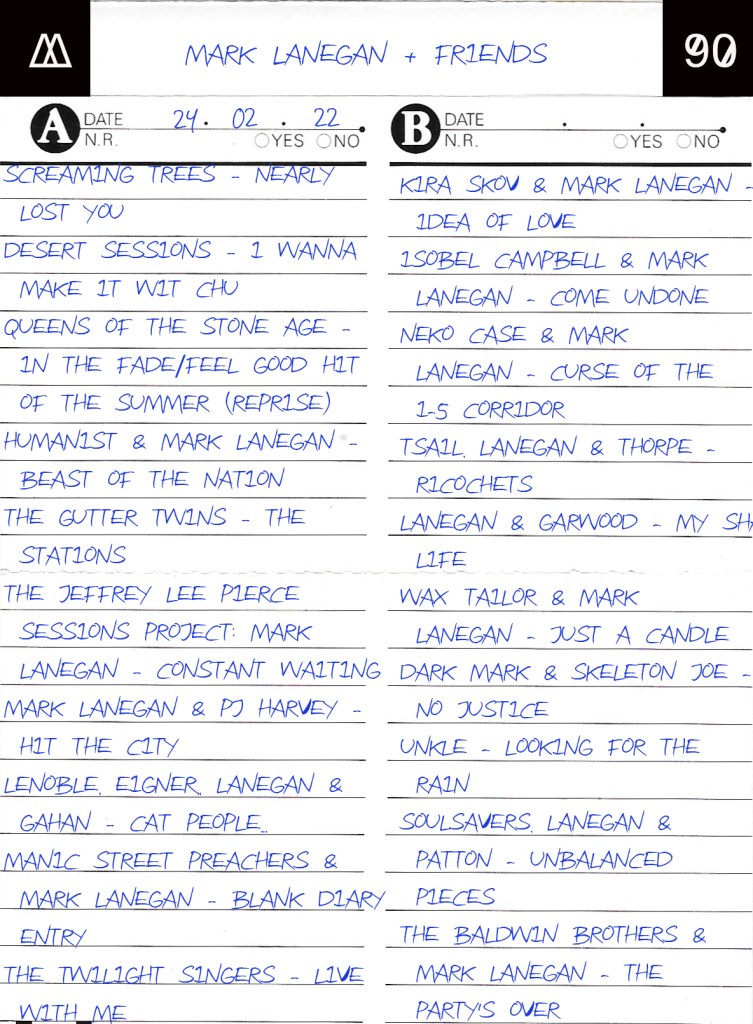 MARK LANEGAN + FRIENDS
90
A DATE 24. 02 . 22
N.R. YES NO
SCREAMING TREES - NEARLY
LOST YOU
DESERT SESSIONS - I WANNA
MAKE IT WIT CHU
QUEENS OF THE STONE AGE -
IN THE FADE/FEEL GOOD HIT
OF THE SUMMER (REPRISE)
HUMANIST & MARK LANEGAN -
BEAST OF THE NATION
THE GUTTER TWINS - THE
STATIONS
THE JEFFREY LEE PIERCE
SESSIONS PROJECT: MARK
LANEGAN - CONSTANT WAITING
MARK LANEGAN & PJ HARVEY -
HIT THE CITY
LENOBLE, EIGNER, LANEGAN &
GAHAN - CAT PEOPLE..
MANIC STREET PREACHERS &
MARK LANEGAN - BLANK DIARY
ENTRY
THE TWILIGHT SINGERS - LIVE
WITH ME
B DATE . .
N.R. YES NO
KIRA SKOV & MARK LANEGAN -
IDEA OF LOVE
ISOBEL CAMPBELL & MARK
LANEGAN - COME UNDONE
NEKO CASE & MARK
LANEGAN - CURSE OF THE
I-5 CORRIDOR
TSAIL, LANEGAN & THORPE -
RICOCHETS
LANEGAN & GARWOOD - MY
LIFE
WAX TAILOR & MARK
LANEGAN - JUST A CANDLE
DARK MARK & SKELETON JOE -
NO JUSTICE
UNKLE - LOOKING FOR THE
RAIN
SOULSAVERS, LANEGAN &
PATTON - UNBALANCED
PIECES
THE BALDWIN BROTHERS &
MARK LANEGAN - THE
PARTY'S OVER